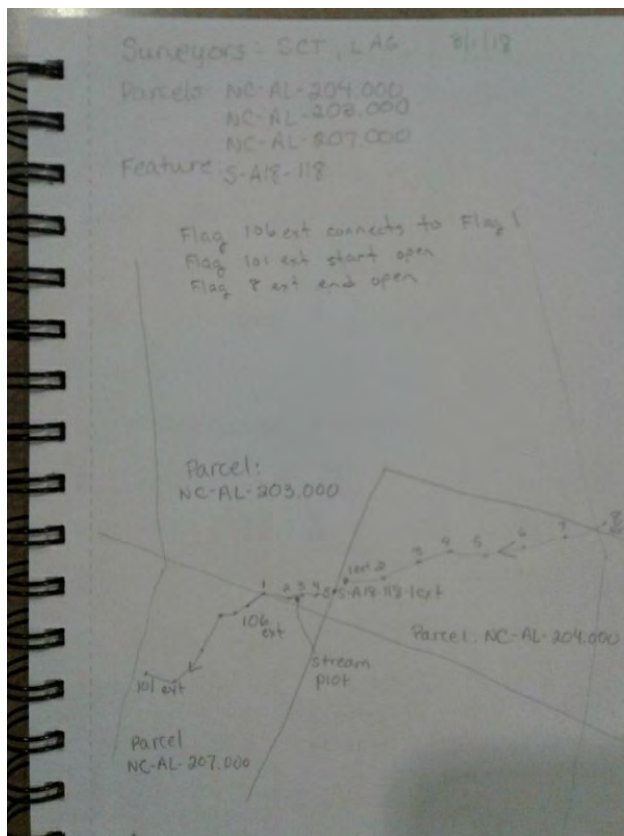 Surveyors: SCT, LAG 8/1/18
Parcels: NC-AL-204.000
NC-AL-203.000
NC-AL-207.000
Feature: S-A18-118
Flag 106 ext connects to Flag 1
Flag 101 ext start open
Flag 8 ext end open
Parcel:
NC-AL-203.000
8
7
6
5
4
3
1ext 2
S-A18-118-1ext
1
2 3 4 5
106
ext
Parcel: NC-AL-204.000
stream
plot
101 ext
Parcel
NC-AL-207.000